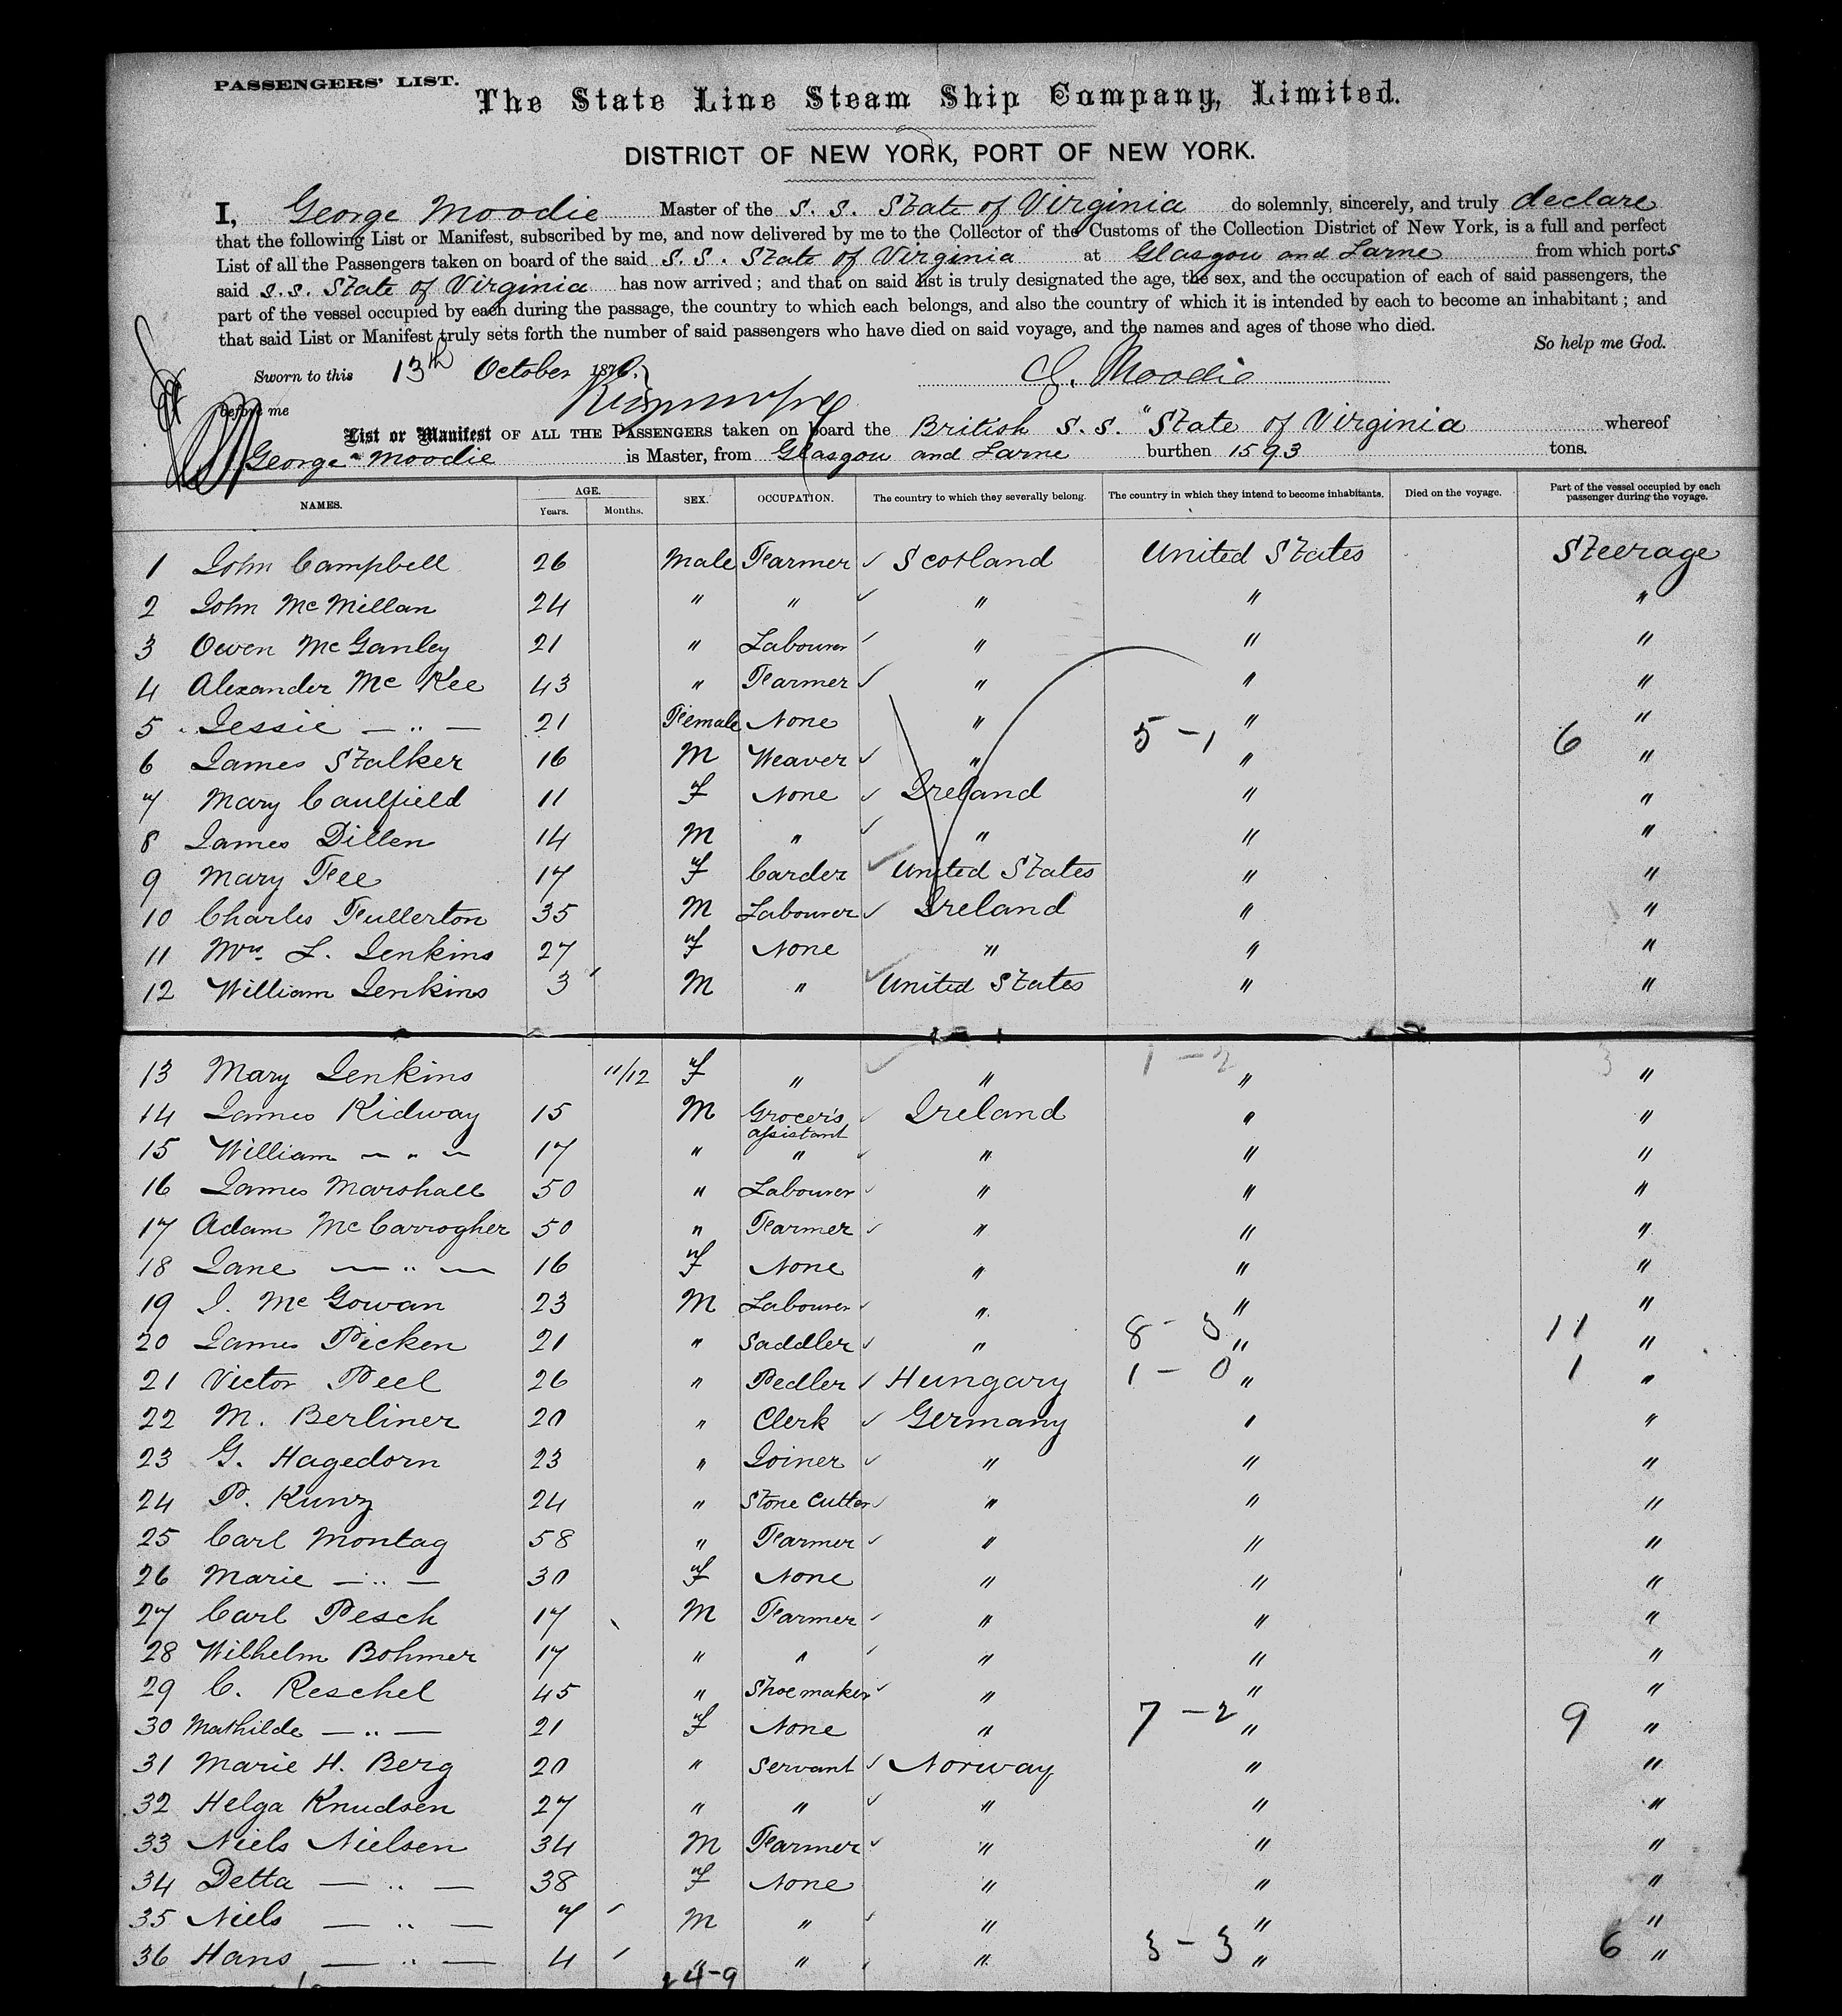 PASSENGERS' LIST.
The State Line Steam Ship Company, Limited.
DISTRICT OF NEW YORK, PORT OF NEW YORK.
I, George Moodie Master of the S. S. State of Virginia do solemnly, sincerely, and truly declare
that the following List or Manifest, subscribed by me, and now delivered by me to the Collector of the Customs of the Collection District of New York, is a full and perfect
List of all the Passengers taken on board of the said S. S. State of Virginia at Glasgow and Larne from which ports
said S.S. State of Virginia has now arrived; and that on said list is truly designated the age, the sex, and the occupation of each of said passengers, the
part of the vessel occupied by each during the passage, the country to which each belongs, and also the country of which it is intended by each to become an inhabitant; and
that said List or Manifest truly sets forth the number of said passengers who have died on said voyage, and the names and ages of those who died.
So help me God.
Sworn to this 13th October 1876. G. Moodie
before me
List or Manifest OF ALL THE PASSENGERS taken on board the British S. S. "State of Virginia whereof
George Moodie is Master, from Glasgow and Larne burthen 1593 tons.
NAMES. AGE. Years. Months. SEX. OCCUPATION. The country to which they severally belong. The country in which they intend to become inhabitants. Died on the voyage. Part of the vessel occupied by each passenger during the voyage.
1 John Campbell 26 Male Farmer Scotland United States Steerage
2 John McMillan 24 " " " " "
3 Owen McGanley 21 " Labourer " " "
4 Alexander McKee 43 " Farmer " " "
5 Jessie — " — 21 Female None " " "
6 James Stalker 16 M Weaver " 5 - 1 " 6 "
7 Mary Caulfield 11 F None Ireland " "
8 James Dillen 14 M " " " "
9 Mary Fee 17 F Carder United States " "
10 Charles Fullerton 35 M Labourer Ireland " "
11 Mrs. L. Jenkins 27 F None " " "
12 William Jenkins 3 M " United States " "
13 Mary Jenkins 11/12 F " " 1 - 2 " 3 "
14 James Kidway 15 M Grocer's assistant Ireland " "
15 William — " — 17 " " " " "
16 James Marshall 50 " Labourer " " "
17 Adam McCarrogher 50 " Farmer " " "
18 Jane — " — 16 F None " " "
19 J. McGowan 23 M Labourer " " "
20 James Picken 21 " Saddler " 8 - 3 " 11 "
21 Victor Peel 26 " Pedler Hungary 1 - 0 " 1 "
22 M. Berliner 20 " Clerk Germany " "
23 G. Hagedorn 23 " Joiner " " "
24 P. Kunz 24 " Stone Cutter " " "
25 Carl Montag 58 " Farmer " " "
26 Marie — " — 30 F None " " "
27 Carl Pesch 17 M Farmer " " "
28 Wilhelm Bohmer 17 " " " " "
29 C. Reschel 45 " Shoemaker " " "
30 Mathilde — " — 21 F None " 7 - 2 " 9 "
31 Marie H. Berg 20 " Servant Norway " "
32 Helga Knudsen 27 " " " " "
33 Niels Nielsen 34 M Farmer " " "
34 Detta — " — 38 F None " " "
35 Niels — " — 7 M " " " "
36 Hans — " — 4 " " " 3 - 3 " 6 "
24-9